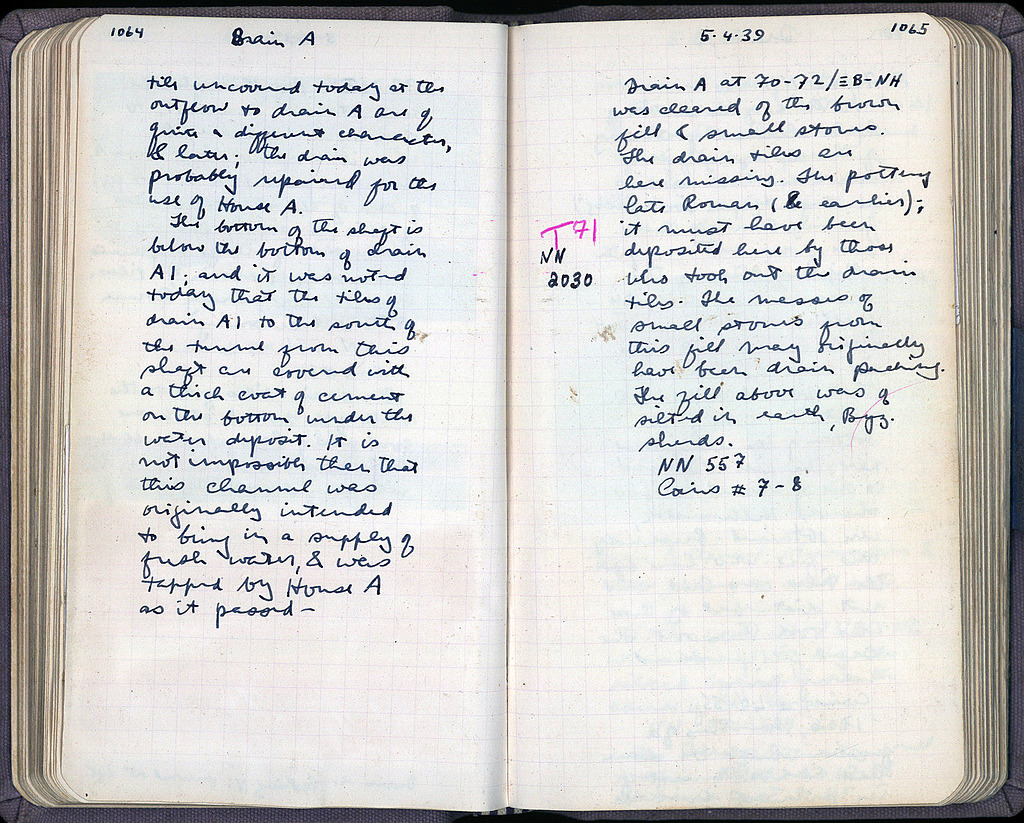 1064
Drain A
tiles uncovered today at the
outflow to drain A are of
quite a different character,
& later; the drain was
probably repaired for the
use of House A.
The bottom of the shaft is
below the bottom of drain
A1; and it was noted
today that the tiles of
drain A1 to the south of
the tunnel from this
shaft are covered with
a thick coat of cement
on the bottom under the
water deposit. It is
not impossible then that
this channel was
originally intended
to bring in a supply of
fresh water, & was
tapped by House A
as it passed —
5-4-39
1065
Drain A at 70-72/ΞB-NH
was cleared of the brown
fill & small stones.
The drain tiles are
here missing. The pottery
late Roman (& earlier);
it must have been
deposited here by those
who took out the drain
tiles. The masses of
small stones from
this fill may originally
have been drain packing.
The fill above was of
silted in earth, Byz.
sherds.
NN 557
Coins # 7-8
T 71
NN
2030